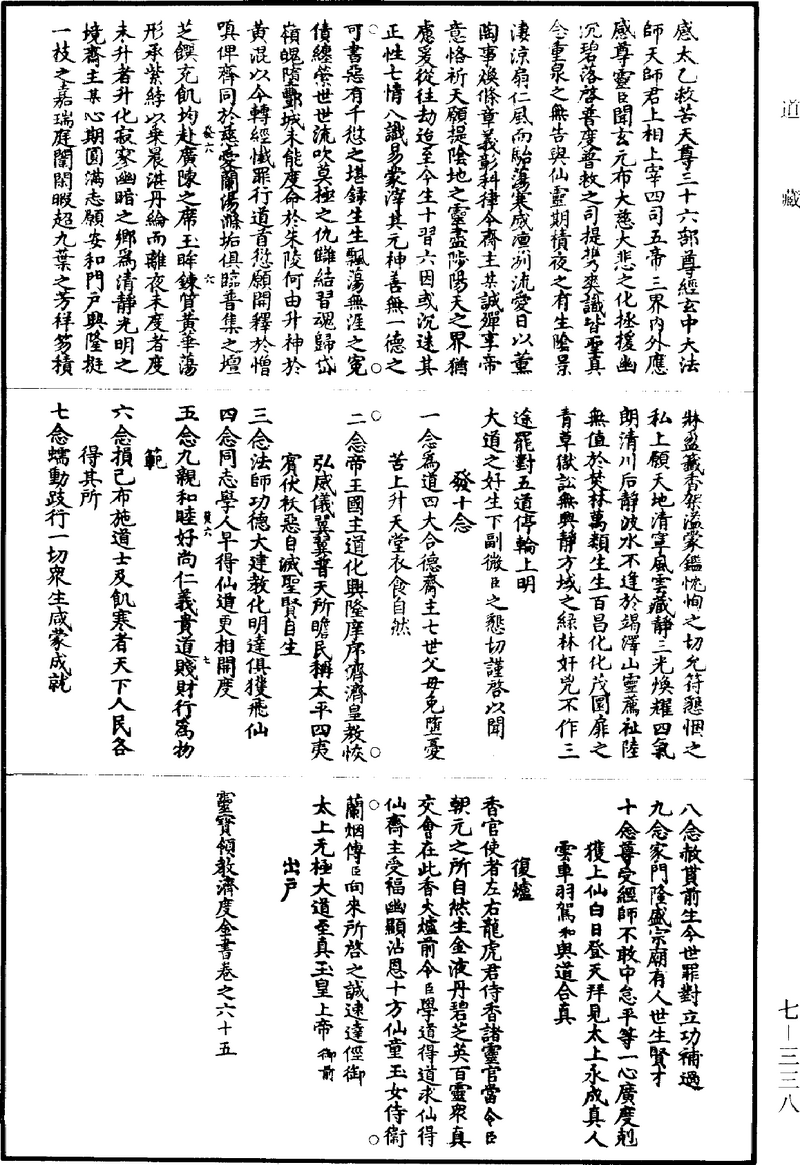 道藏
感太乙救苦天尊三十六部尊經玄中大法
師天師君上相上宰四司五帝三界內外應
感尊靈臣聞玄元布大慈大悲之化拯援幽
沉碧落啓普度普救之司提擕爽識皆聖真
念重泉之無告與仙靈期積夜之有生陰景
淒涼扇仁風而駘蕩寒威凜冽流愛日以薰
陶事煥條章義彰科律今齋主某誠殫事帝
意恪祈天願提陰地之靈盡陟陽天之界猶
慮爰從往劫迨至今生十習六因或沉迷其
正性七情八識易蒙滓其元神善無一德之
可書惡有千愆之堪錄生生飄蕩無涯之寃
債纏縈世世流吹莫極之仇讎結習魂歸岱
嶺魄墮酆城未能度命於朱陵何由升神於
黃混以今轉經懺罪行道首愆願開釋於憎
嗔俾齋同於慈愛蘭湯滌垢俱臨普集之壇
芝饌充飢均赴廣陳之席玉眸鍊質黃華蕩
形承紫綍以乘晨湛丹綸而離夜未度者度
未升者升化寂寥幽暗之鄉為清靜光明之
境齋主某心期圓滿志願安和門戸興隆挺
一枝之嘉瑞庭闈閑暇超九葉之芳祥笏積
牀盈籤香架溢蒙鑑忱恂之切允符懇悃之
私上願天地清寧風雲藏靜三光煥耀四氣
朗清川后靜波水不逢於竭澤山靈薦祉陸
無值於焚林萬類生生百昌化化茂圜扉之
青草獄訟無興靜方域之緑林奸兇不作三
途罷對五道停輪上明
大道之好生下副微臣之懇切謹啓以聞
發十念
一念為道四大合德齋主七世父母免墮憂
苦上升天堂衣食自然
二念帝王國主道化興隆庠序濟濟皇教恢
弘威儀翼翼普天所瞻民稱太平四夷
賓伏袄惡自滅聖賢自生
三念法師功德大建教化明達俱獲飛仙
四念同志學人早得仙道更相開度
五念九親和睦好尚仁義貴道賤財行為物
範
六念損己布施道士及飢寒者天下人民各
得其所
七念蠕動跂行一切衆生咸蒙成就
八念赦貰前生今世罪對立功補過
九念家門隆盛宗廟有人世生賢才
十念尊受經師不敢中怠平等一心廣度剋
獲上仙白日登天拜見太上永成真人
雲車羽駕和與道合真
復爐
香官使者左右龍虎君侍香諸靈官當令臣
朝元之所自然生金液丹碧芝英百靈衆真
交會在此香火爐前令臣學道得道求仙得
仙齋主受福幽顯沾恩十方仙童玉女侍衛
蘭烟傳臣向來所啓之誠速達徑御
太上无極大道至真玉皇上帝御前
出戸
靈寶領教濟度金書卷之六十五
七—三三八